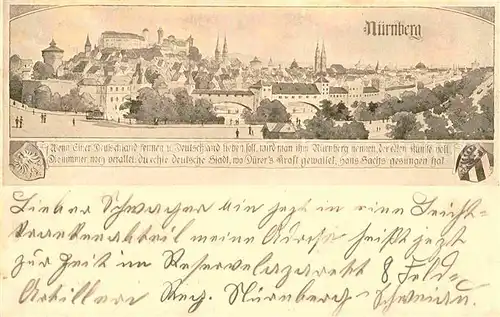 Nürnberg
Wenn Einer Deutschland kennen u. Deutschland lieben soll, wird man ihm Nürnberg nennen, der edlen Künste voll.
Du nimmer noch veraltet, du echte deutsche Stadt, wo Dürer's Kraft gewaltet, Hans Sachs gesungen hat.
Lieber Schwager bin jezt in eine Leicht-
krankenabteil meine Adresse heißt jezt
zur Zeit im Reservelazarett 8 Feld-
Artillerie Reg. Nürnberg-Schweinau.